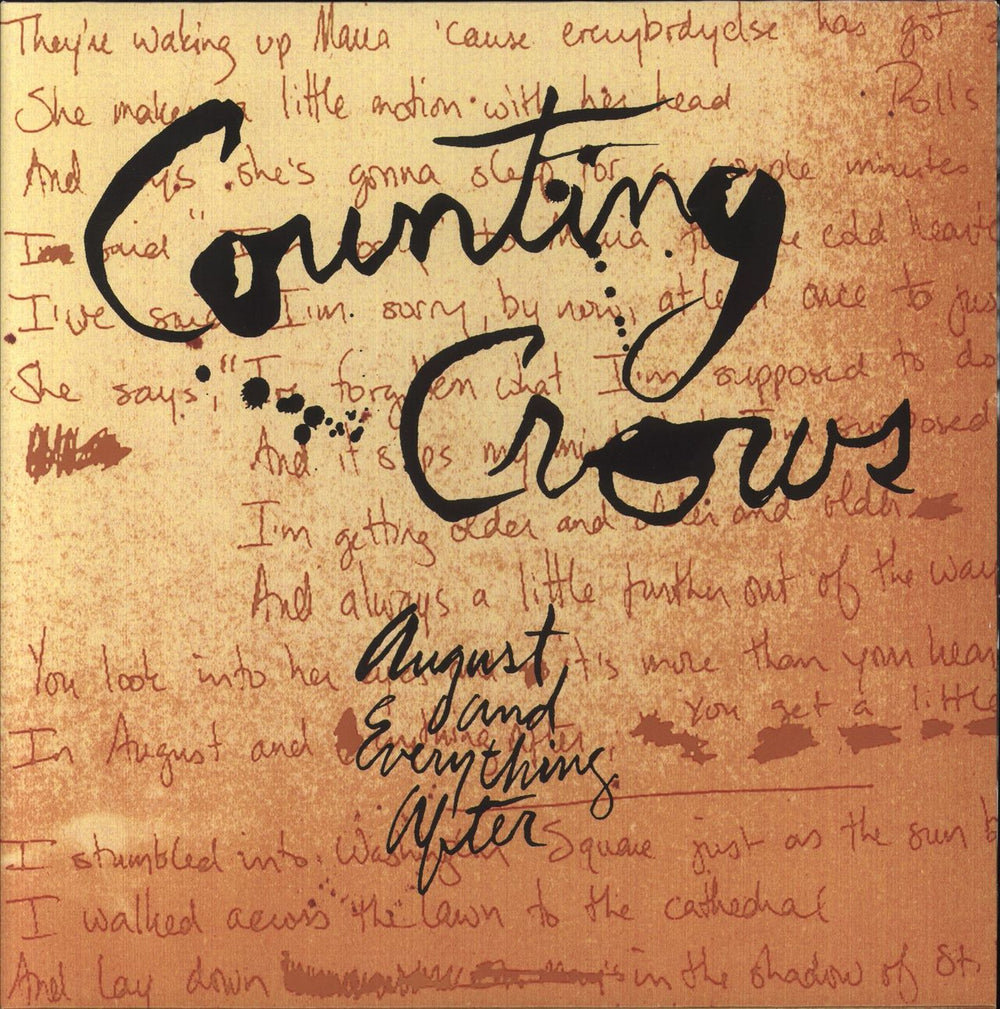 They're waking up Maria 'cause everybodyelse has got
She makes a little motion with her head Rolls
Counting
And says she's gonna sleep for a couple minutes
I'm said to Maria for the cold heart
I've said I'm sorry, by now, at least once to jus
Crows
She says, "I've forgotten what I'm supposed to do
And it slips my mind I'm supposed
I'm getting older and older and older
And always a little further out of the way
August
and
Everything
After
You look into her it's more than your hear
In August and everything after, you get a little
I stumbled into Washington Square just as the sun b
I walked across the lawn to the cathedral
And lay down in the shadow of St.